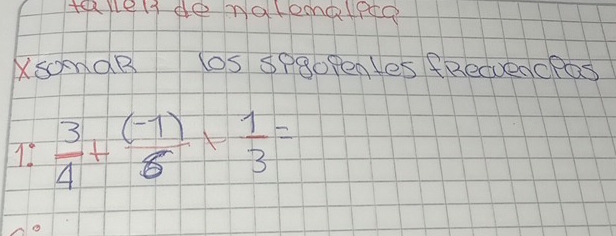 talleR de matematica
x somaR los siguientes fRecuencias
1: 3/4 + (-1)/6 + 1/3 =